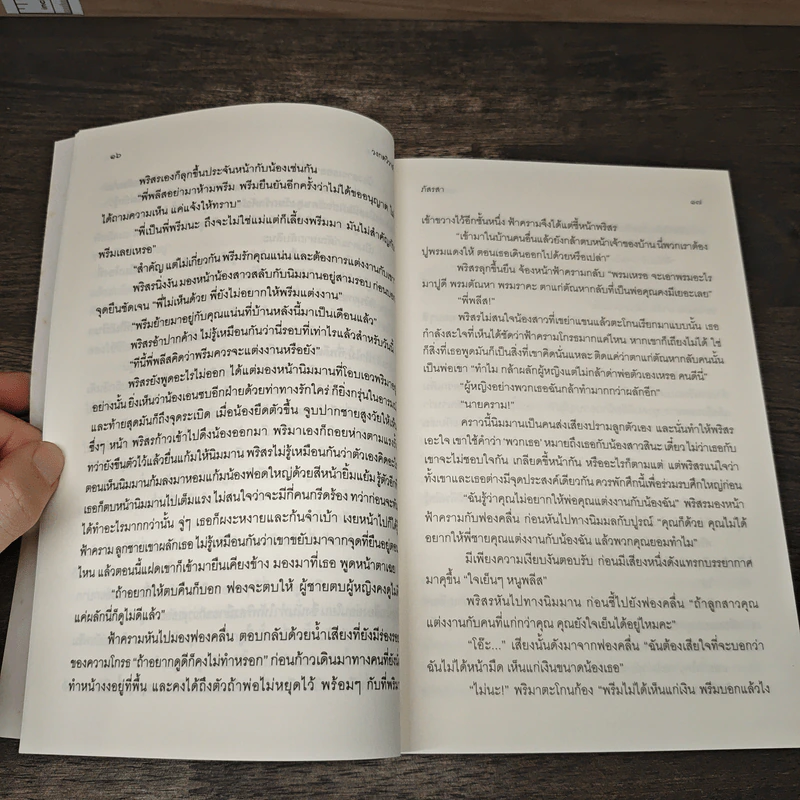 ๑๖
พริสรเองก็ลุกขึ้นประจันหน้ากับน้องเช่นกัน
“พี่พลีสอย่ามาห้ามพรีม พรีมยืนยันอีกครั้งว่าไม่ได้ขออนุญาต
ได้ถามความเห็น แค่แจ้งให้ทราบ”
“พี่เป็นพี่พรีมนะ ถึงจะไม่ใช่แม่แต่ก็เลี้ยงพรีมมา มันไม่สำคัญกับ
พรีมเลยเหรอ”
“สำคัญ แต่ไม่เกี่ยวกัน พรีมรักคุณแน่น และต้องการแต่งงานกับเขา”
พริสรนิ่งงัน มองหน้าน้องสาวสลับกับนิมมานอยู่สามรอบ ก่อนบอก
จุดยืนชัดเจน “พี่ไม่เห็นด้วย พี่ยังไม่อยากให้พรีมแต่งงาน”
“พรีมย้ายมาอยู่กับคุณแน่นที่บ้านหลังนี้มาเป็นเดือนแล้ว”
พริสรอ้าปากค้าง ไม่รู้เหมือนกันว่านี่รอบที่เท่าไรแล้วสำหรับวันนี้
“ทีนี้พี่พลีสคิดว่าพรีมควรจะแต่งงานหรือยัง”
พริสรยังพูดอะไรไม่ออก ได้แต่มองหน้านิมมานที่โอบเอวพริมาอยู่
อย่างนั้น ยิ่งเห็นว่าน้องเอนซบอีกฝ่ายด้วยท่าทางรักใคร่ ก็ยิ่งกรุ่นในอารมณ์
และท้ายสุดมันก็ถึงจุดระเบิด เมื่อน้องยืดตัวขึ้น จูบปากชายสูงวัยให้เห็น
ซึ่งๆ หน้า พริสรก้าวเข้าไปดึงน้องออกมา พริมาเองก็ถอยห่างตามแรง
ทว่ายังขืนตัวไว้แล้วยื่นแก้มให้นิมมาน พริสรไม่รู้เหมือนกันว่าตัวเองคิดอะไร
ตอนเห็นนิมมานก้มลงมาหอมแก้มน้องฟอดใหญ่ด้วยสีหน้ายิ้มแย้ม รู้ตัวอีกที
เธอก็ตบหน้านิมมานไปเต็มแรง ไม่สนใจว่าจะมีกี่คนกรีดร้อง ทว่าก่อนจะทัน
ได้ทำอะไรมากกว่านั้น จู่ๆ เธอก็ผงะหงายและก้นจ้ำเบ้า เงยหน้าไปก็ได้
ฟ้าคราม ลูกชายเขาผลักเธอ ไม่รู้เหมือนกันว่าเขาขยับมาจากจุดที่ยืนอยู่ตอน
ไหน แล้วตอนนี้แฝดเขาก็เข้ามายืนเคียงข้าง มองมาที่เธอ พูดหน้าตาเฉย
“ถ้าอยากให้ตบคืนก็บอก ฟองจะตบให้ ผู้ชายตบผู้หญิงคงดูไม่
แต่ผลักนี่ก็ดูไม่ดีแล้ว”
ฟ้าครามหันไปมองฟองคลื่น ตอบกลับด้วยน้ำเสียงที่ยังมีร่องรอย
ของความโกรธ “ถ้าอยากดูดีก็คงไม่ทำหรอก” ก่อนก้าวเดินมาทางคนที่ยัง
ทำหน้างงอยู่ที่พื้น และคงได้ถึงตัวถ้าพ่อไม่หยุดไว้ พร้อมๆ กับที่พริมา
ภัสรสา
๑๗
เข้าขวางไว้อีกชั้นหนึ่ง ฟ้าครามจึงได้แต่ชี้หน้าพริสร
“เข้ามาในบ้านคนอื่นแล้วยังกล้าตบหน้าเจ้าของบ้าน นี่พวกเราต้อง
ปูพรมแดงให้ ตอนเธอเดินออกไปด้วยหรือเปล่า”
พริสรลุกขึ้นยืน จ้องหน้าฟ้าครามกลับ “พรมเหรอ จะเอาพรมอะไร
มาปูดี พรมตัณหา พรมราคะ ตาแก่ตัณหากลับที่เป็นพ่อคุณคงมีเยอะเลย”
“พี่พลีส!”
พริสรไม่สนใจน้องสาวที่เขย่าแขนแล้วตะโกนเรียกมาแบบนั้น เธอ
กำลังสะใจที่เห็นได้ชัดว่าฟ้าครามโกรธมากแค่ไหน หากเขาก็เถียงไม่ได้ ใช่
ก็สิ่งที่เธอพูดมันก็เป็นสิ่งที่เขาคิดนั่นแหละ ติดแค่ว่าตาแก่ตัณหากลับคนนั้น
เป็นพ่อเขา “ทำไม กล้าผลักผู้หญิงแต่ไม่กล้าด่าพ่อตัวเองเหรอ คนดีนี่”
“ผู้หญิงอย่างพวกเธอฉันกล้าทำมากกว่าผลักอีก”
“นายคราม!”
คราวนี้นิมมานเป็นคนส่งเสียงปรามลูกตัวเอง และนั่นทำให้พริสร
เอะใจ เขาใช้คำว่า ‘พวกเธอ’ หมายถึงเธอกับน้องสาวสินะ เดี๋ยว ไม่ว่าเธอกับ
เขาจะไม่ชอบใจกัน เกลียดขี้หน้ากัน หรืออะไรก็ตามแต่ แต่พริสรแน่ใจว่า
ทั้งเขาและเธอต่างมีจุดประสงค์เดียวกัน ควรพักศึกนี้เพื่อร่วมรบศึกใหญ่ก่อน
“ฉันรู้ว่าคุณไม่อยากให้พ่อคุณแต่งงานกับน้องฉัน” พริสรมองหน้า
ฟ้าครามกับฟองคลื่น ก่อนหันไปทางนิมมลกับปูรณ์ “คุณก็ด้วย คุณไม่ได้
อยากให้พี่ชายคุณแต่งงานกับน้องฉัน แล้วพวกคุณยอมทำไม”
มีเพียงความเงียบงันตอบรับ ก่อนมีเสียงหนึ่งดังแทรกบรรยากาศ
มาคุขึ้น “ใจเย็นๆ หนูพลีส”
พริสรหันไปทางนิมมาน ก่อนชี้ไปยังฟองคลื่น “ถ้าลูกสาวคุณ
แต่งงานกับคนที่แก่กว่าคุณ คุณยังใจเย็นได้อยู่ไหมคะ”
“โอ๊ะ...” เสียงนั้นดังมาจากฟองคลื่น “ฉันต้องเสียใจที่จะบอกว่า
ฉันไม่ได้หน้ามืด เห็นแก่เงินขนาดน้องเธอ”
“ไม่นะ!” พริมาตะโกนก้อง “พรีมไม่ได้เห็นแก่เงิน พรีมบอกแล้วไง